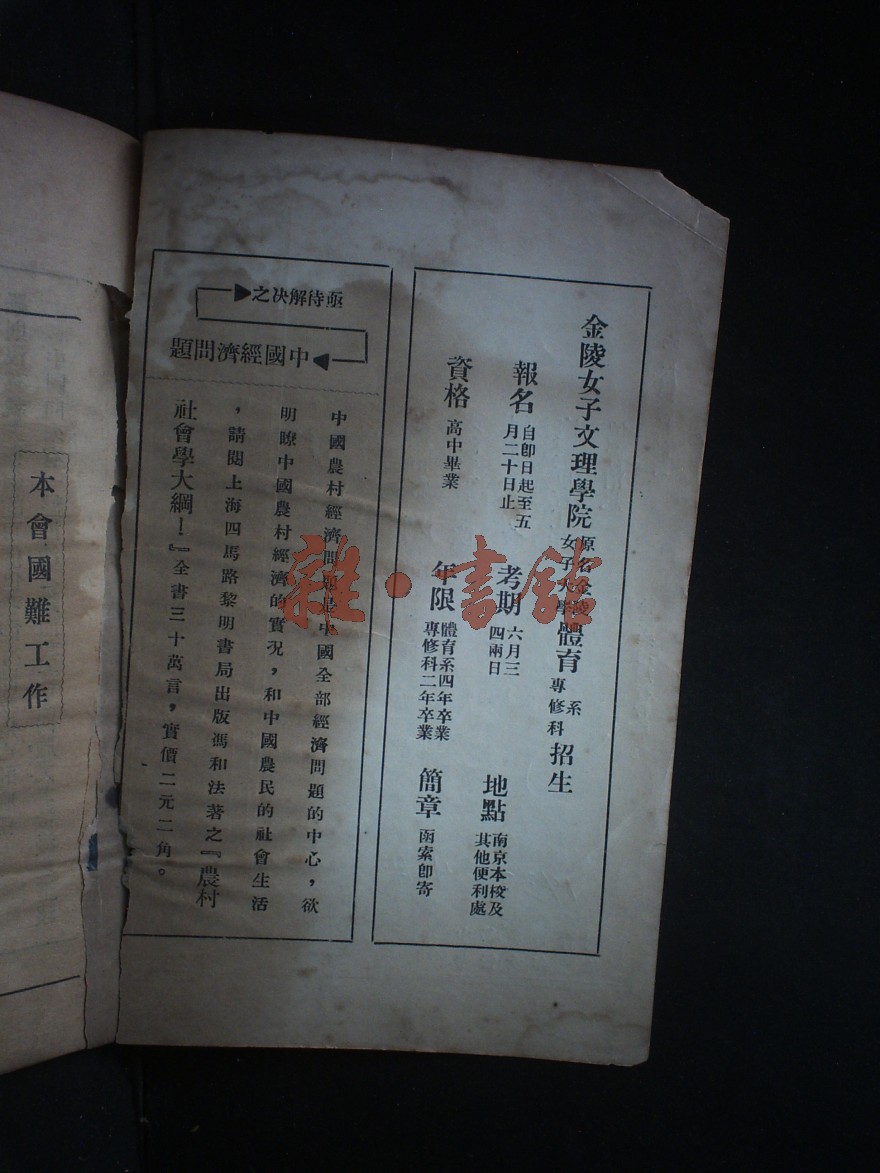 金陵女子文理學院 原名金陵女子大學 體育 系專修科 招生
報名 自卽日起至五月二十日止
考期 六月三四兩日
地點 南京本校及其他便利處
資格 高中畢業
年限 體育系四年卒業專修科二年卒業
簡章 函索卽寄
亟待解決之
中國經濟問題
中國農村經濟問題是中國全部經濟問題的中心，欲
明瞭中國農村經濟的實況，和中國農民的社會生活
，請閱上海四馬路黎明書局出版馮和法著之『農村
社會學大綱！』全書三十萬言，實價二元二角。
本會國難工作
雜·書館